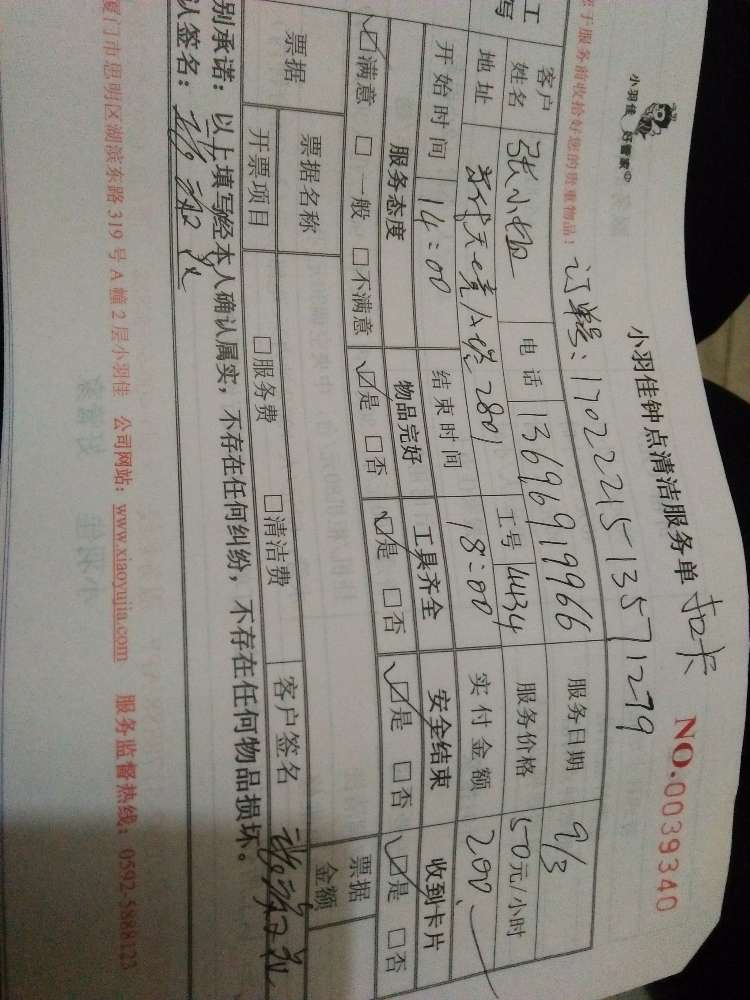 小羽佳 好管家
小羽佳钟点清洁服务单 扣卡
NO.0039340
于服务前收拾好您的贵重物品！ 订单号：17022151357 1279
客户姓名 张小姐 电话 13696919966 服务日期 9/3
地址 天 A 2801 工号 4434 服务价格 50元/小时
开始时间 14:00 结束时间 18:00 实付金额 200
服务态度 物品完好 工具齐全 安全结束 收到卡片
☑满意 □一般 □不满意 ☑是 □否 ☑是 □否 ☑是 □否 ☑是 □否
票据 票据名称 票据金额
开票项目 □服务费 □清洁费 客户签名
别承诺：以上填写经本人确认属实，不存在任何纠纷，不存在任何物品损坏。
认签名：
厦门市思明区湖滨东路319号A幢2层小羽佳 公司网站：www.xiaoyujia.com 服务监督热线：0592-5888123